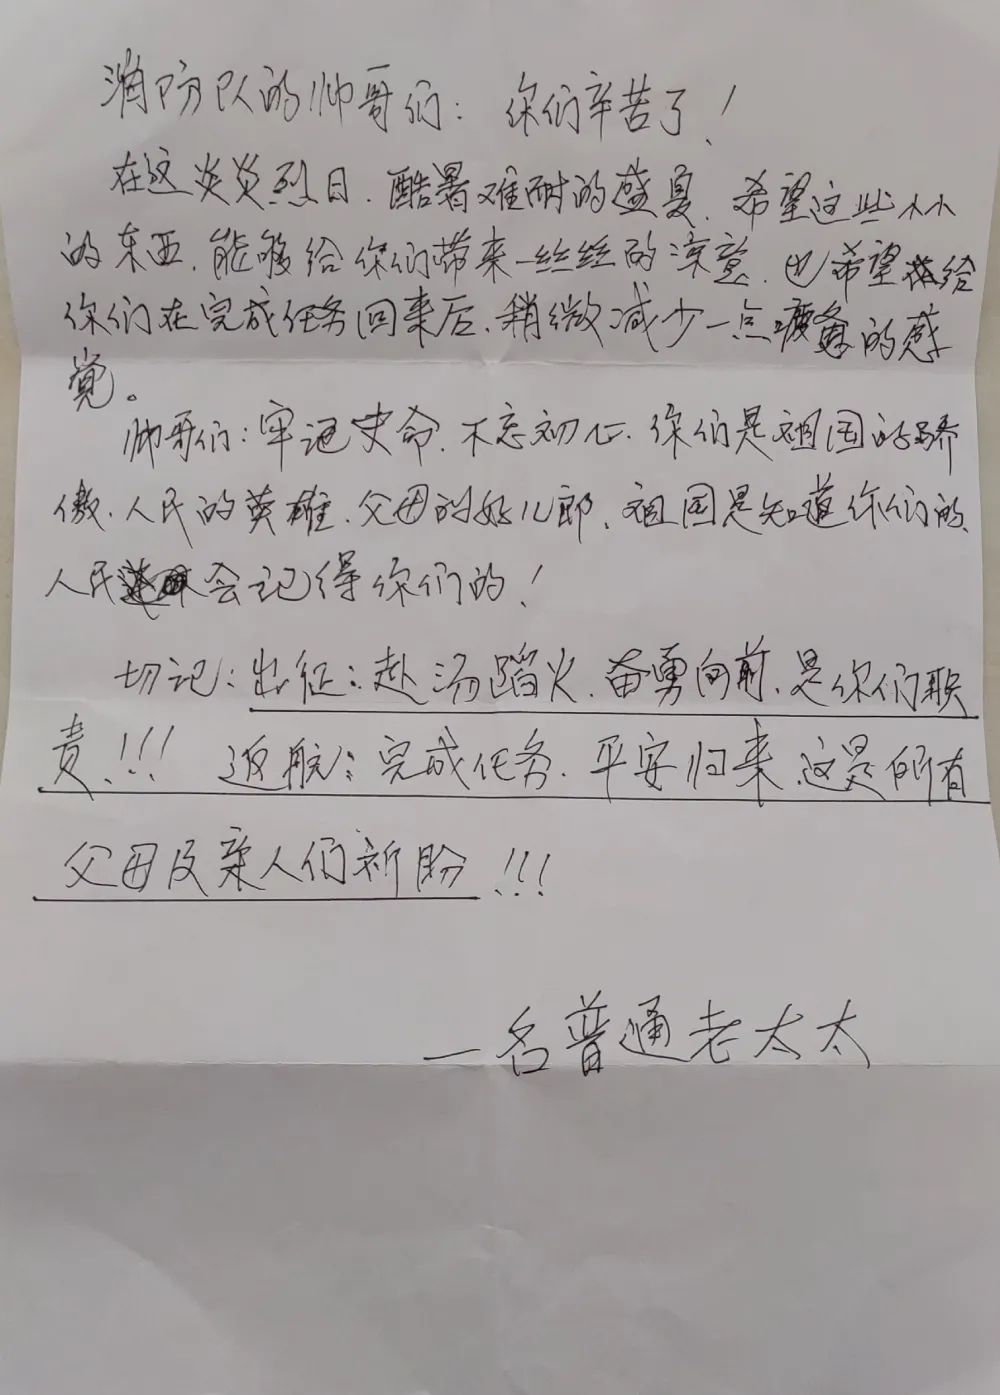 消防队的帅哥们：你们辛苦了！
在这炎炎烈日、酷暑难耐的盛夏、希望这些小小
的东西、能够给你们带来一丝丝的凉意、也希望给
你们在完成任务回来后、稍微减少一点疲惫的感
觉。
帅哥们：牢记史命、不忘初心、你们是祖国的骄
傲、人民的英雄、父母的好儿郎、祖国是知道你们的、
人民会记得你们的！
切记：出征：赴汤蹈火、奋勇向前、是你们职
责、!!! 返航：完成任务、平安归来、这是所有
父母及亲人们祈盼!!!
一名普通老太太